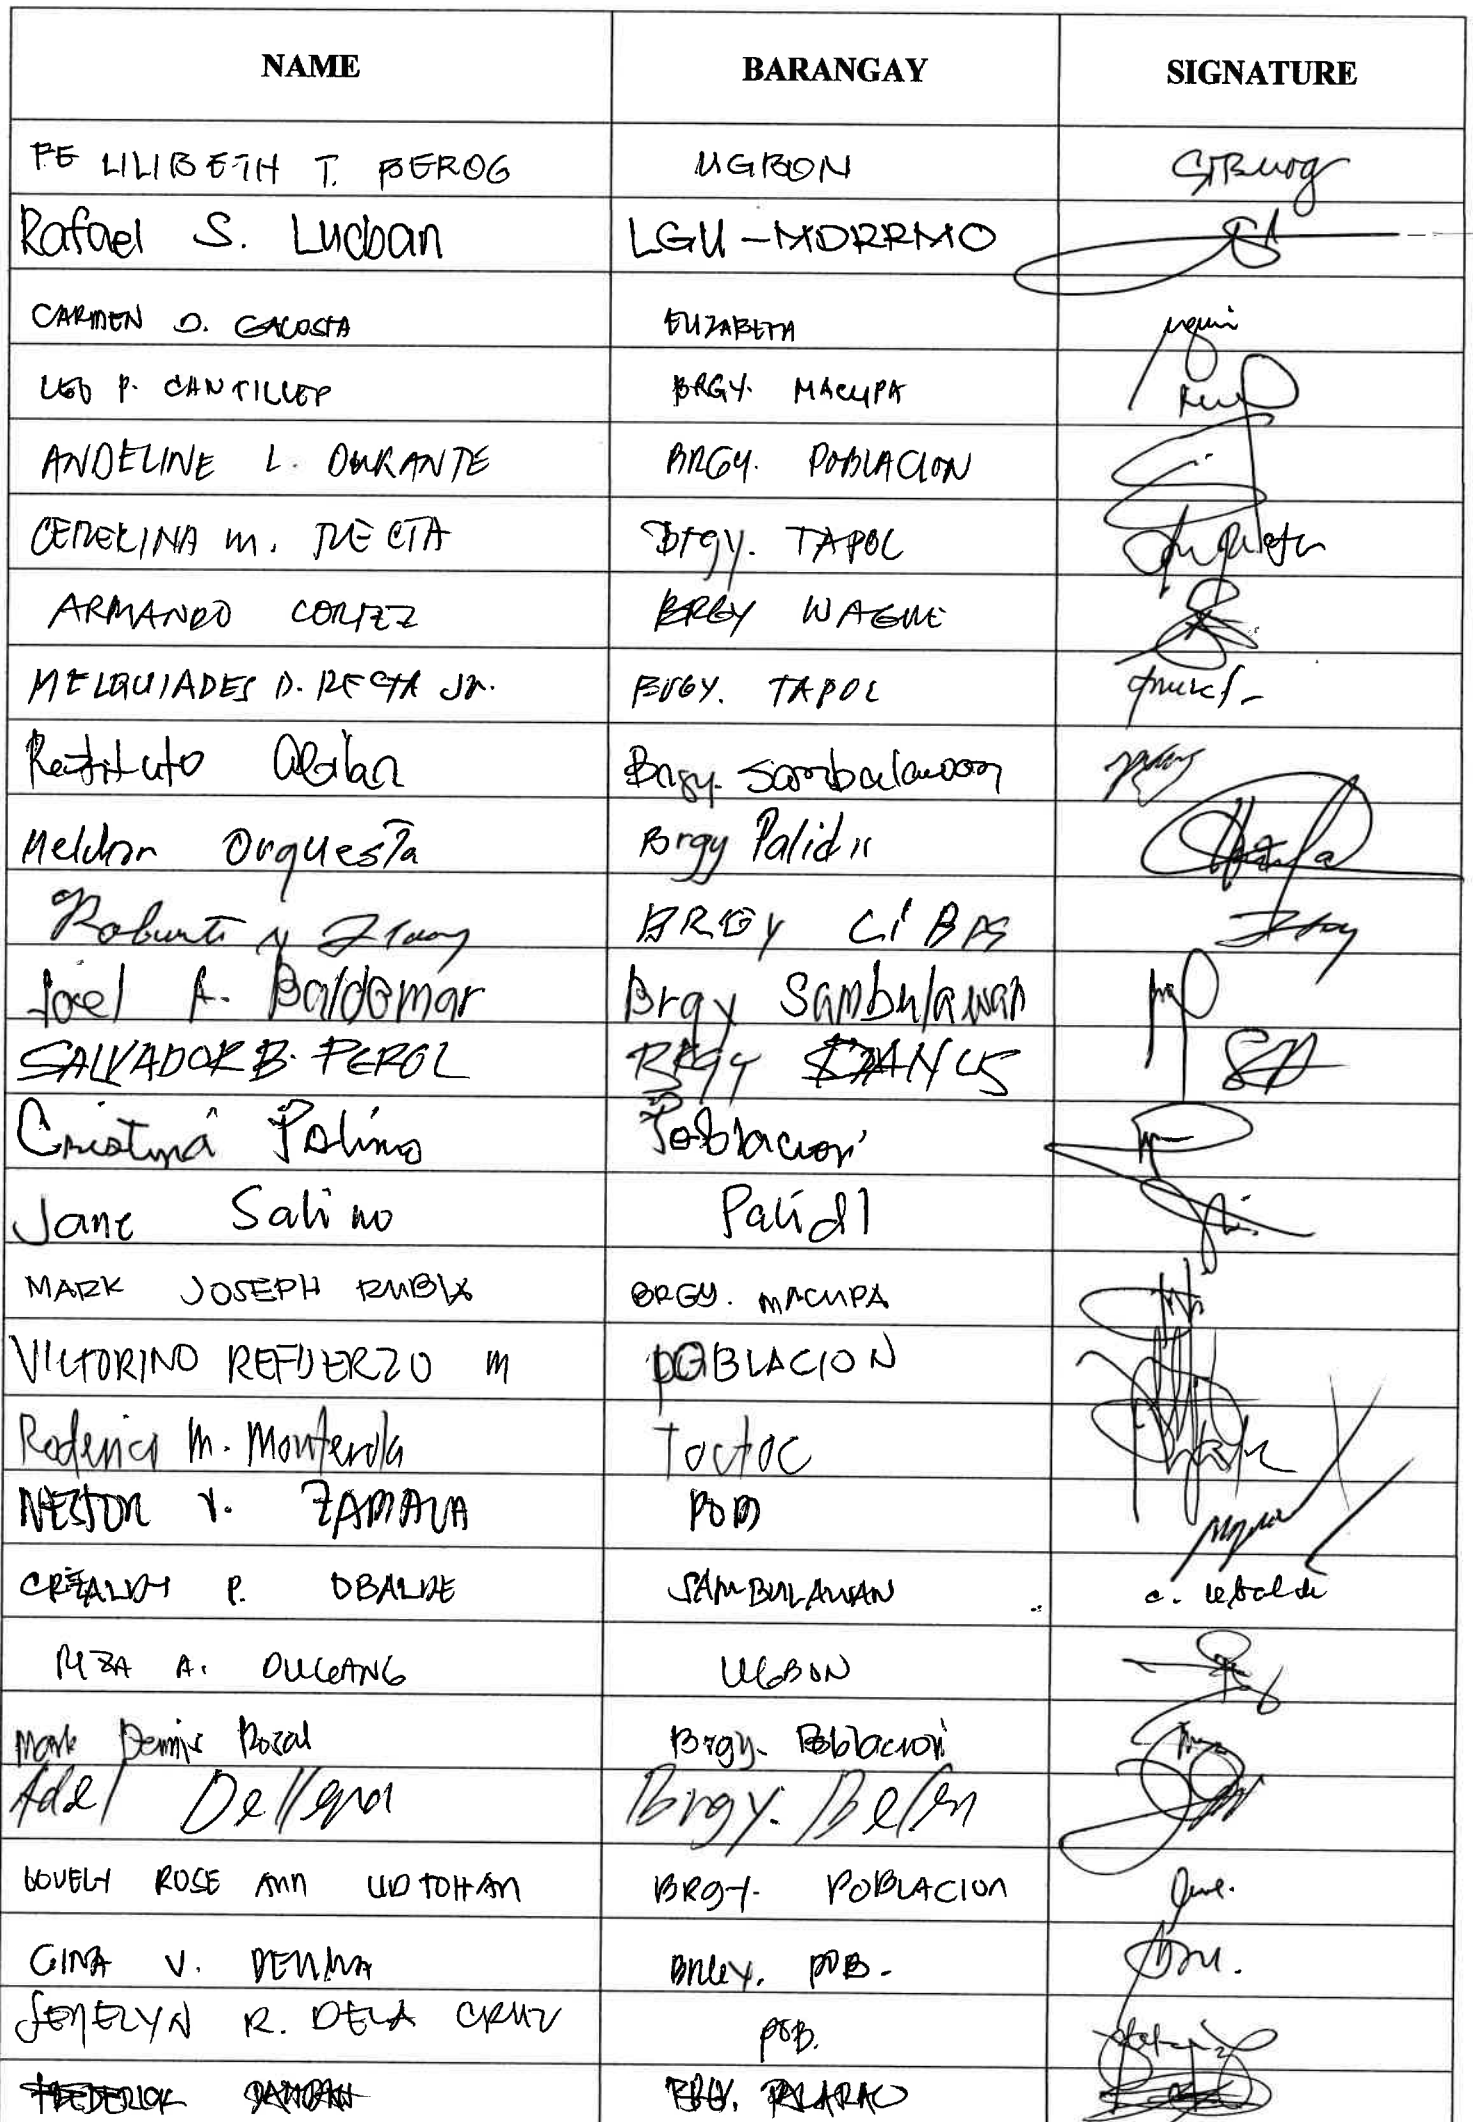 NAME BARANGAY SIGNATURE
FE LILIBETH T. BEROG UGBON
Rafael S. Lucban LGU-MDRRMO
CARMEN D. GACOSTA ELIZABETH
LEO P. CANTILLEP BRGY. MACUPA
ANDELINE L. DURANTE BRGY. POBLACION
CERELINA M. RECTA Brgy. TAPOL
ARMANDO CORTEZ BRGY WAGUE
MELQUIADES D. RECTA JR. BRGY. TAPOL
Restituto Brgy. Sambulawan
Melchor Orquesta Brgy Palid II
BRGY CIBAS
Joel A. Baldomar Brgy Sambulawan
SALVADOR B. PEROL BRGY DANUS
Cristina Polino Poblacion
Jane Salino Palid I
MARK JOSEPH RUBIA BRGY. MACUPA
VICTORINO REFUERZO M POBLACION
Roderick M. Monterola Toctoc
NESTOR V. ZAMALA POB
CRIZALDY P. UBALDE SAMBULAWAN c. Ubalde
RIZA A. DULGANG UGBON
Mark Dennis Rosal Brgy. Poblacion
Adel Dellepa Brgy. Belen
LOVELY ROSE ANN UDTOHAN BRGY. POBLACION
GINA V. BRGY. POB.
JENELYN R. DELA CRUZ POB.
FREDERICK BRGY. PALARAO